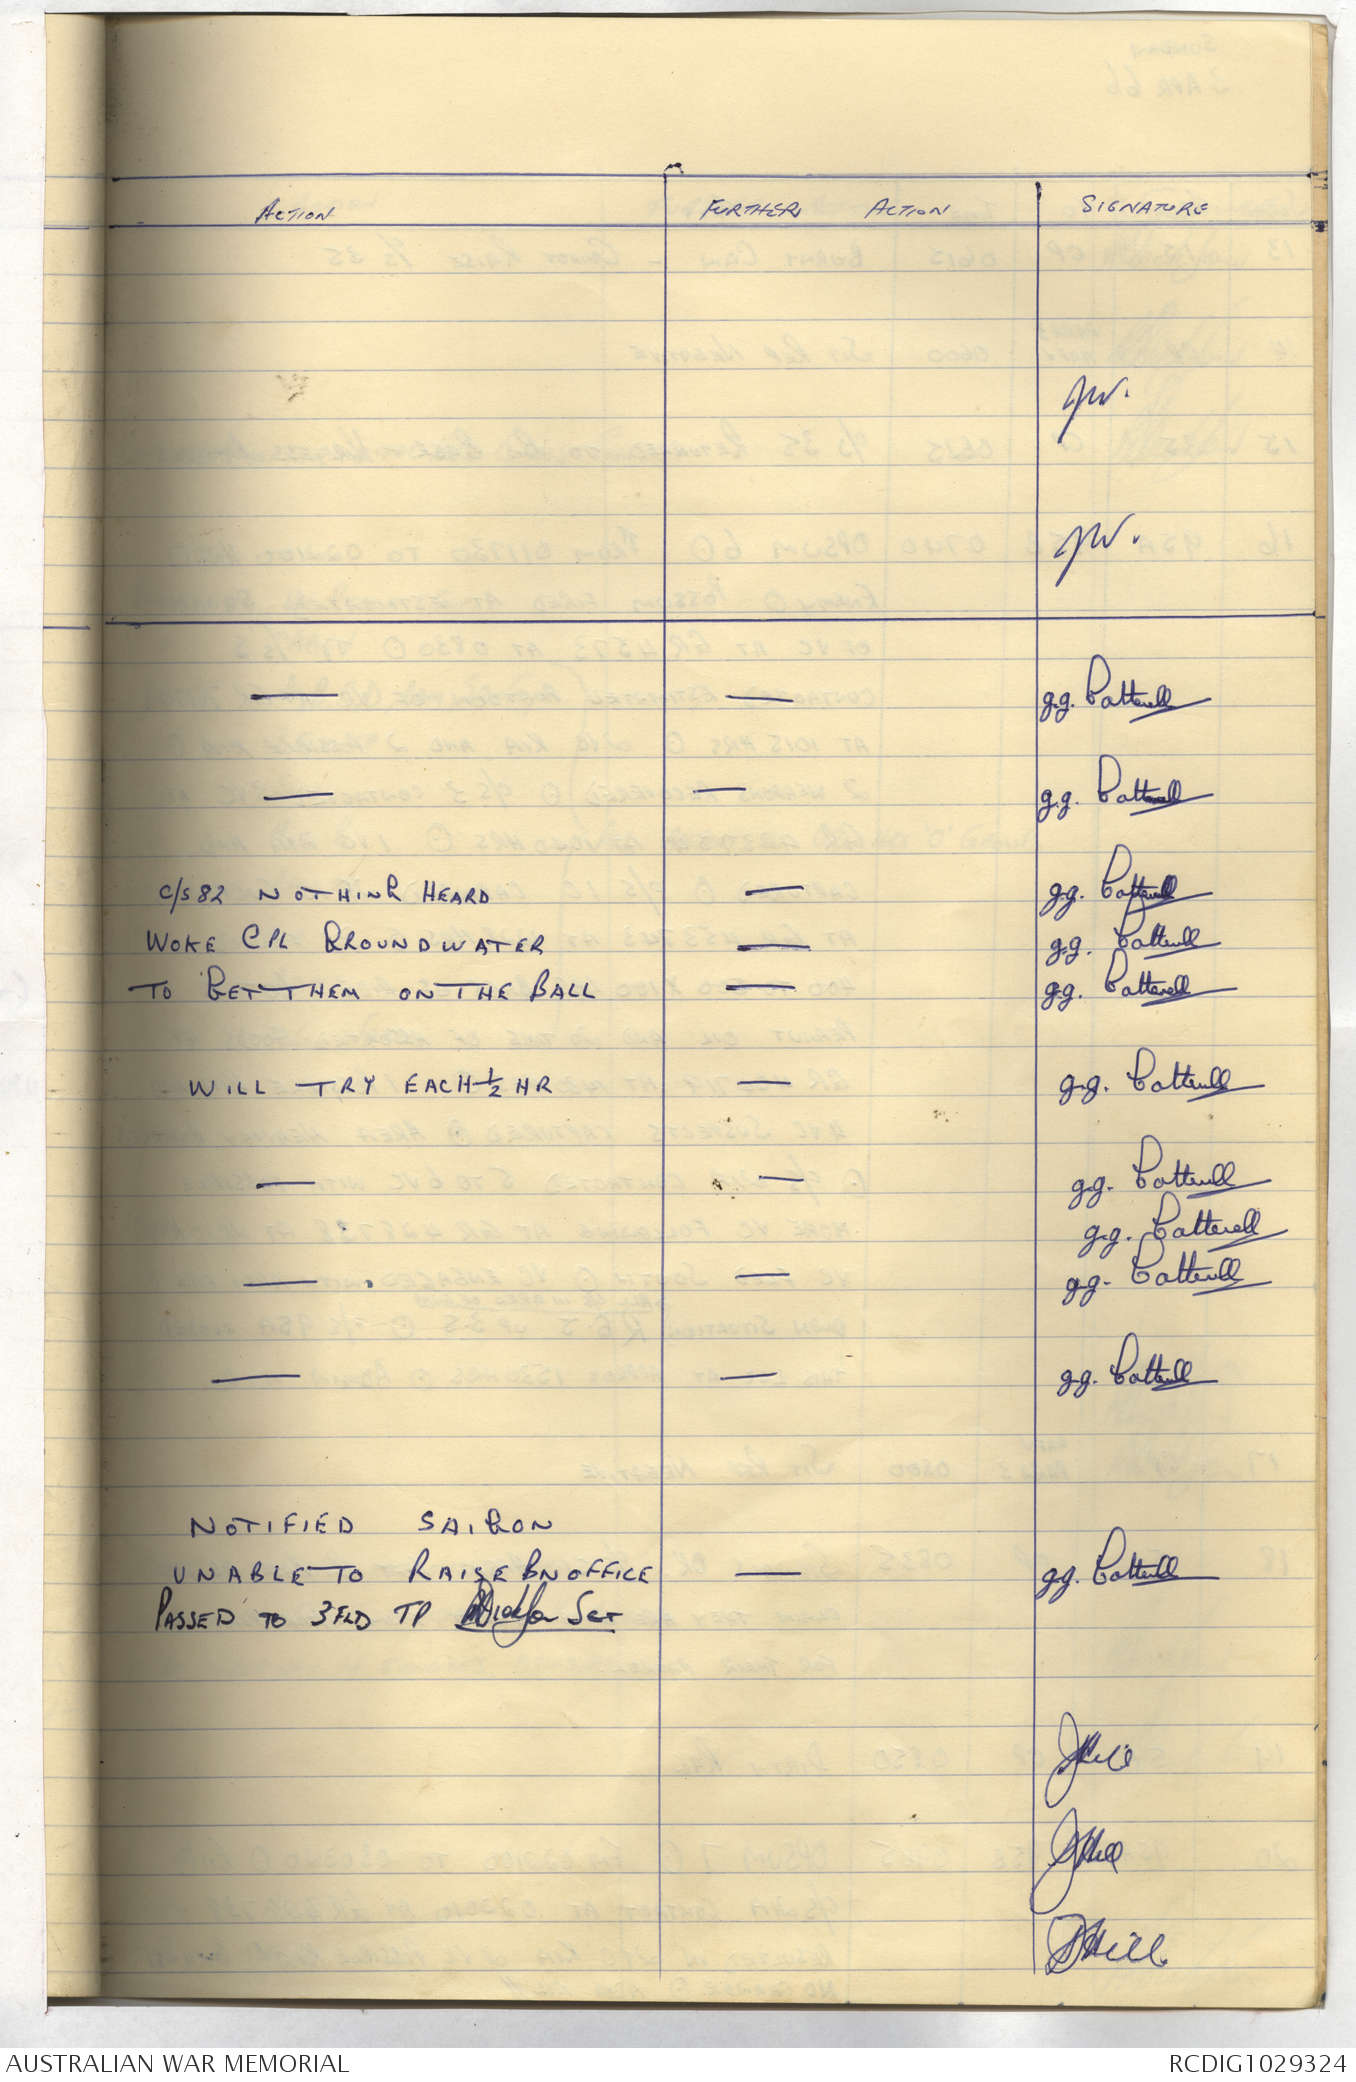 ACTION FURTHER ACTION SIGNATURE
JW.
JW.
— — g.g. Cotterell
— — g.g. Cotterell
C/S 82 NOTHING HEARD — g.g. Cotterell
WOKE CPL GROUNDWATER — g.g. Cotterell
TO GET THEM ON THE BALL — g.g. Cotterell
WILL TRY EACH ½ HR — g.g. Cotterell
— — g.g. Cotterell
g.g. Cotterell
— — g.g. Cotterell
— — g.g. Cotterell
NOTIFIED SAIGON
UNABLE TO RAISE BN OFFICE — g.g. Cotterell
PASSED TO 3 FLD TP Sgt
JHill
JHill
JHill
AUSTRALIAN WAR MEMORIAL RCDIG1029324